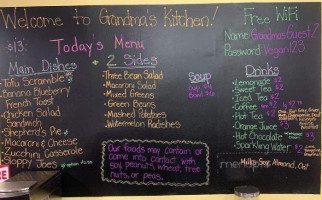 Welcome to Grandma's Kitchen!
$13:
Today's Menu
Main Dishes
Tofu Scramble
Banana Blueberry
French Toast
Chicken Salad
Sandwich
Shepherd's Pie
Macaroni & Cheese
Zucchini Casserole
Sloppy Joes
+ 2 Sides
- Three Bean Salad
- Macaroni Salad
- Mixed Greens
- Green Beans
- Mashed Potatoes
- Watermelon Radishes
Soup
Cup
Bowl
Our foods may contain or
come into contact with
soy, peanuts, wheat, tree
nuts, or peas.
Free WiFi
Name: GrandmasGuest2
Password: Vegan123
Drinks
- Lemonade $2
- Sweet Tea $2
- Iced Tea $2
- Coffee
- Hot Tea $2
- Orange Juice
- Hot Chocolate
- Sparkling Water
Milks: Soy, Almond, Oat